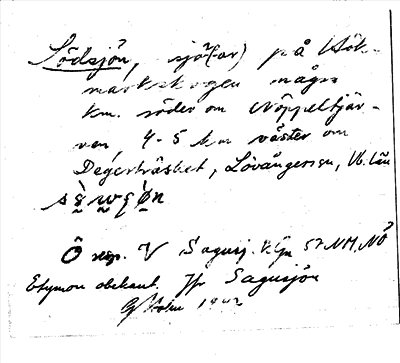 Södsjön, sjö(ar) på Hök-
marksskogen några
km. söder om Noppeltjär-
nen, 4-5 km väster om
Degerträsket, Lövångers sn, Vb. län
Ö resp. V Sagusj. V. Gn 57 NM, NÖ
Etymon obekant. Jfr Sagusjön
1942